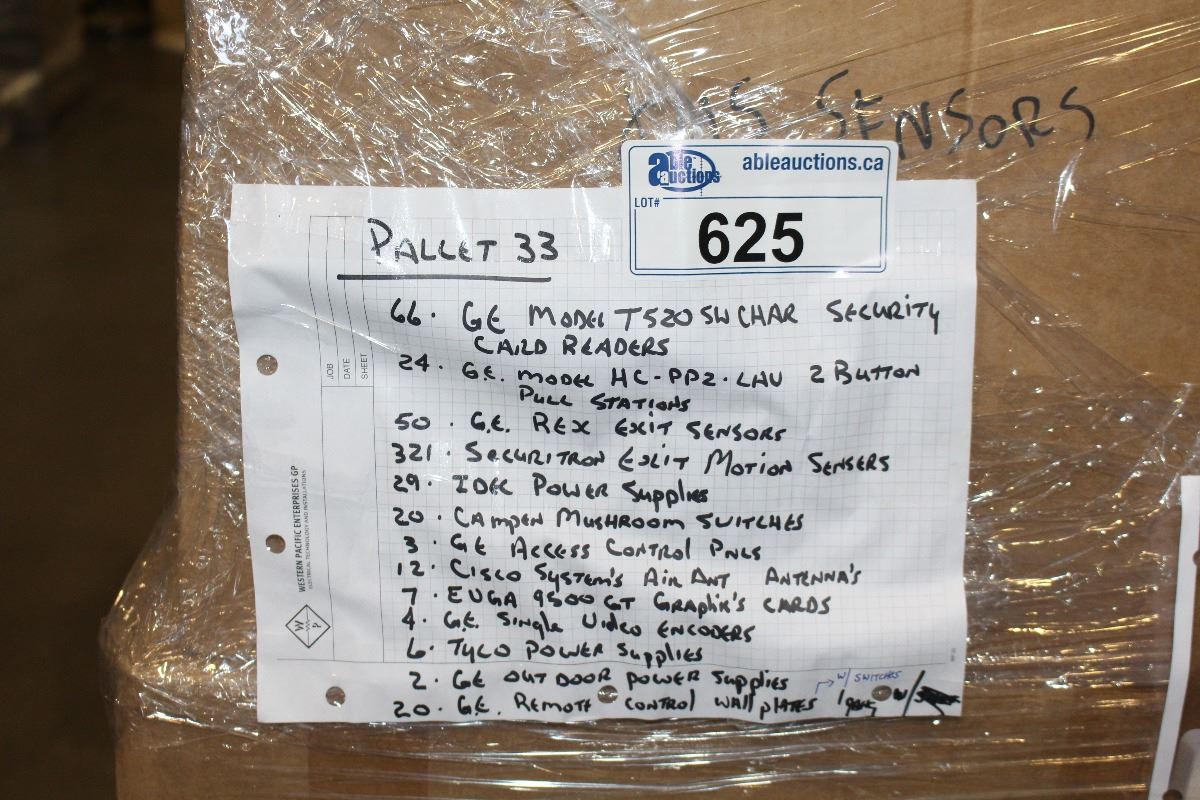 SENSORS
able auctions
ableauctions.ca
LOT#
625
PALLET 33
66. GE MODEL T520SWCHAR SECURITY
CARD READERS
24. G.E. MODEL HC-PP2-LHU 2 BUTTON
PULL STATIONS
50. G.E. REX EXIT SENSORS
321. SECURITRON EXIT MOTION SENSERS
29. IDEC POWER SUPPLIES
20. CAMDEN MUSHROOM SWITCHES
3. GE ACCESS CONTROL PNLS
12. CISCO SYSTEM'S AIR ANT ANTENNA'S
7. EUGA 9500 GT GRAPHIK'S CARDS
4. G.E. SINGLE VIDEO ENCODERS
6. TYCO POWER SUPPLIES
2. GE OUTDOOR POWER SUPPLIES
W/ SWITCHES
20. G.E. REMOTE CONTROL WALL PLATES 1 gang W/
JOB
DATE
SHEET
WESTERN PACIFIC ENTERPRISES GP
ELECTRICAL TECHNOLOGY AND INSTALLATIONS
W P